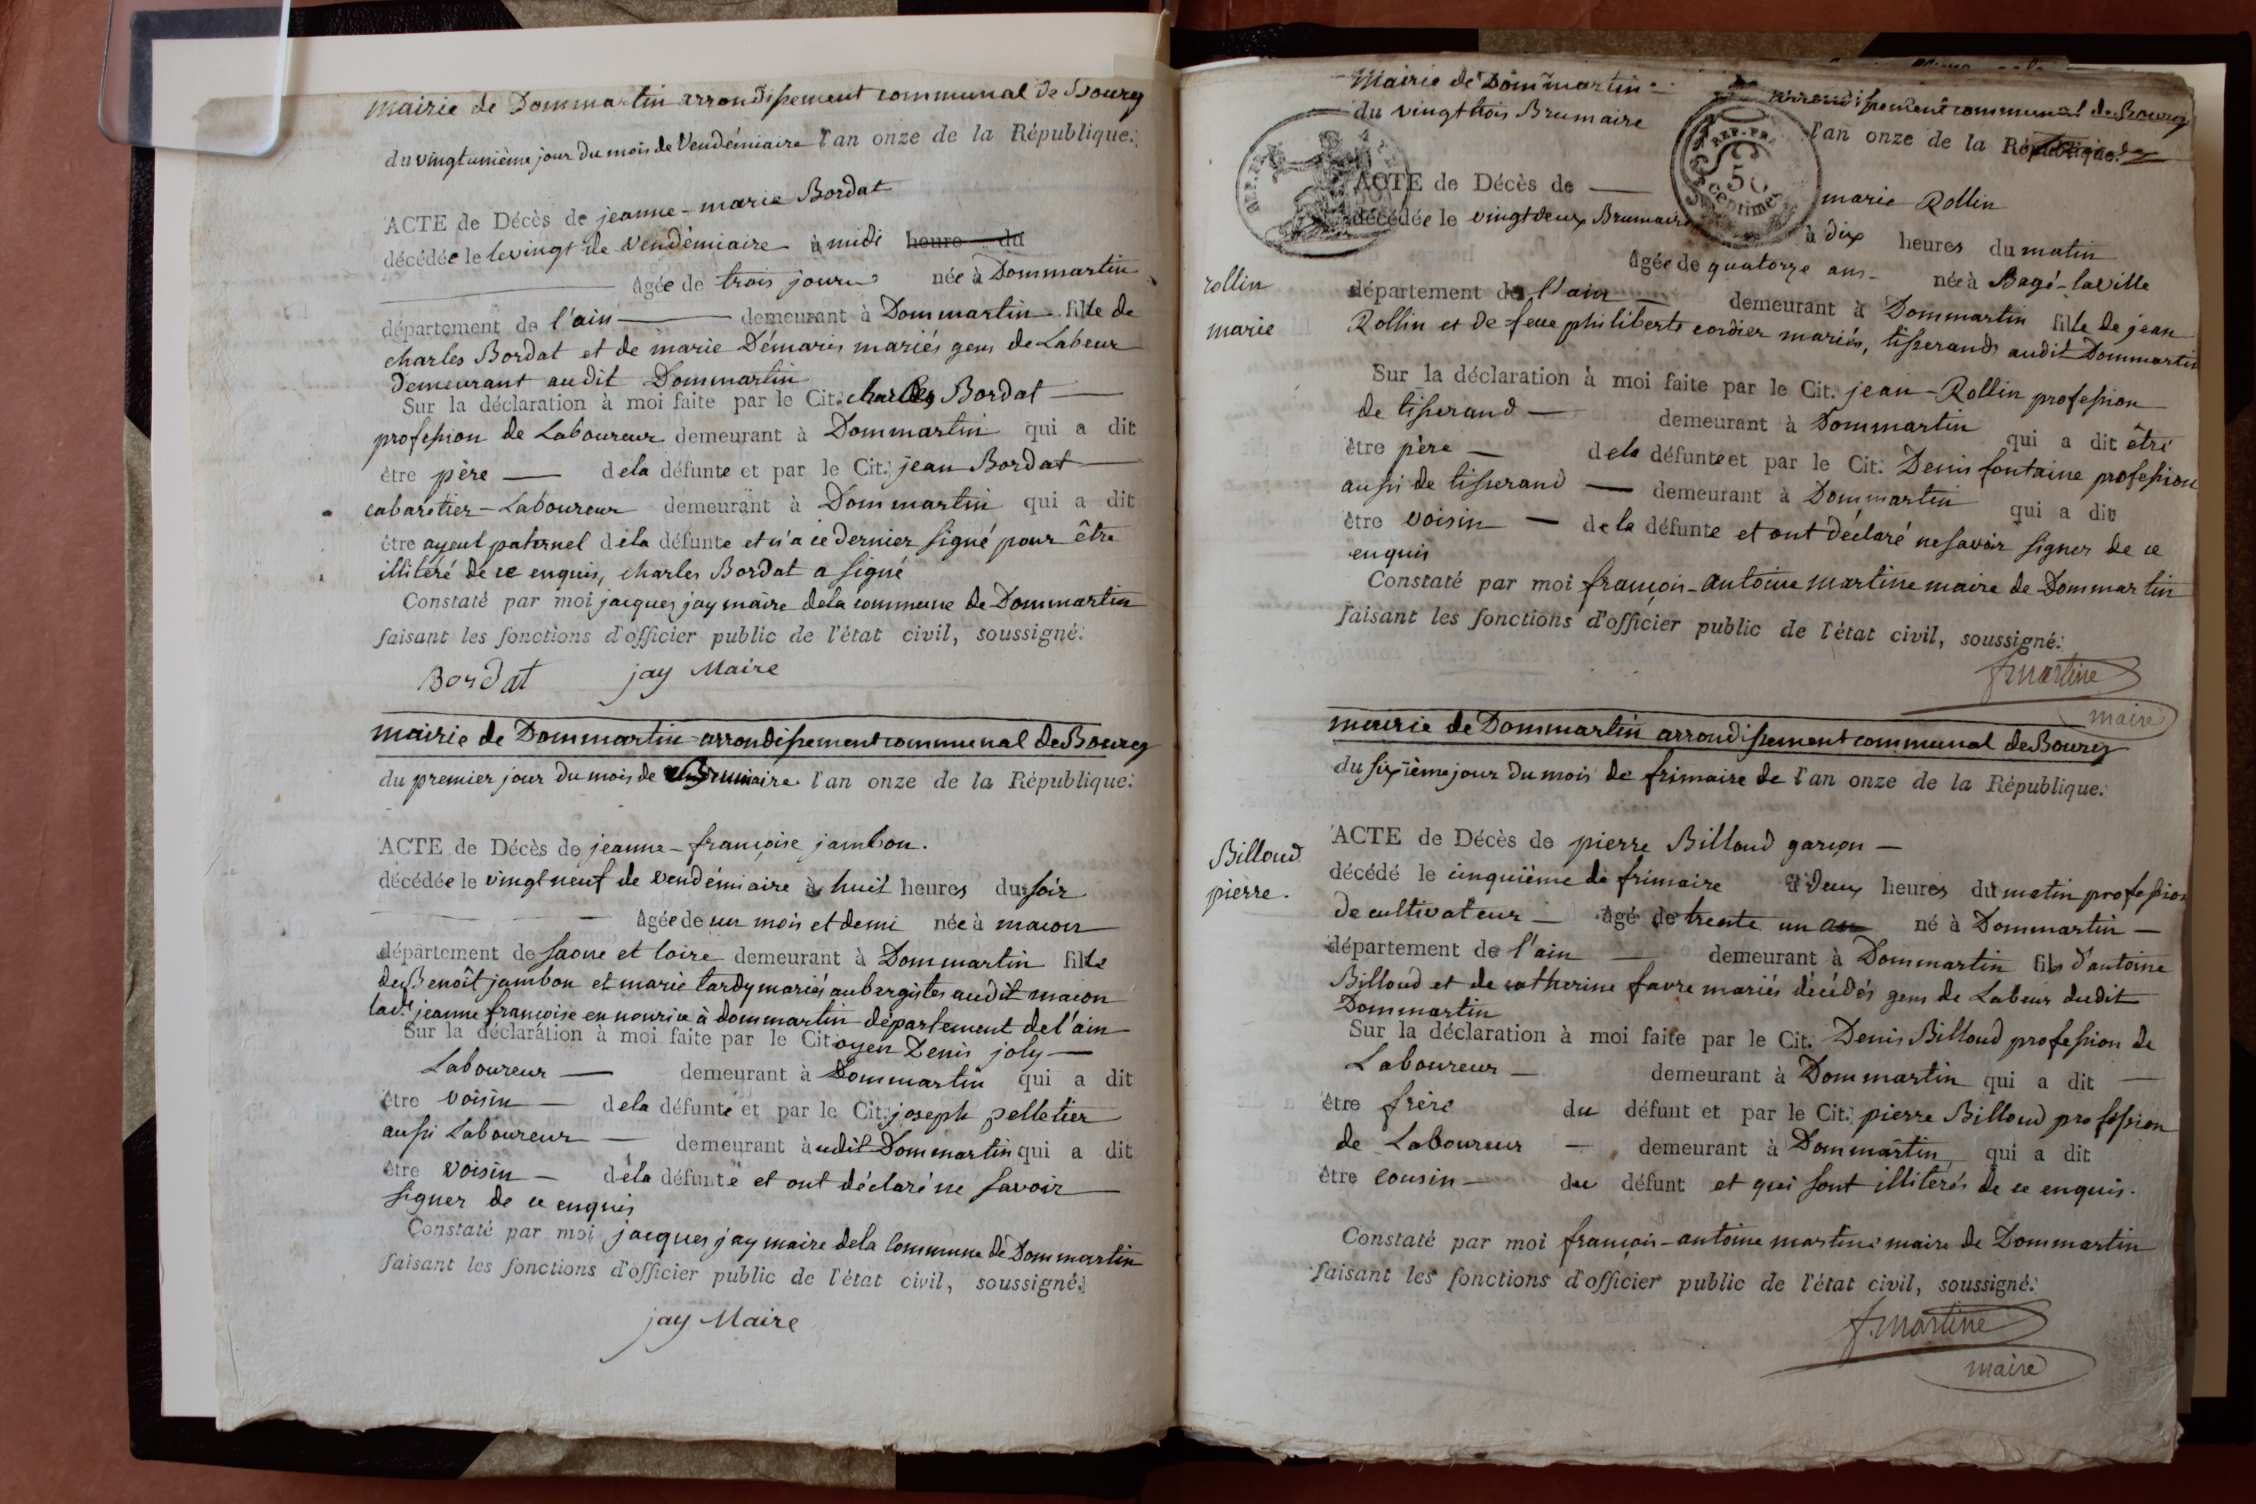 mairie de Dommartin arrondissement communal de Bourg
du vingt unième jour du mois de Vendémiaire l'an onze de la République.
ACTE de Décès de jeanne-marie Bordat
décédée le le vingt de Vendémiaire à midi heure du
âgée de trois jours née à Dommartin
département de l'ain demeurant à Dommartin fille de
charles Bordat et de marie Démaris mariés gens de Labeur
demeurant audit Dommartin
Sur la déclaration à moi faite par le Cit. charles Bordat
profession de Laboureur demeurant à Dommartin qui a dit
être père de la défunte et par le Cit. jean Bordat
cabaretier-Laboureur demeurant à Dommartin qui a dit
être ayeul paternel de la défunte et n'a ce dernier signé pour être
illitéré de ce enquis, charles Bordat a signé
Constaté par moi jacques jay maire de la commune de Dommartin
faisant les fonctions d'officier public de l'état civil, soussigné.
Bordat jay Maire
mairie de Dommartin arrondissement communal de Bourg
du premier jour du mois de Brumaire l'an onze de la République.
ACTE de Décès de jeanne-françoise jambon.
décédée le vingt neuf de vendémiaire à huit heures du soir
âgée de un mois et demi née à macon
département de saone et loire demeurant à Dommartin fille
de Benoît jambon et marie tardy mariés aubergistes audit macon
lad.te jeanne françoise en nourice à dommartin département de l'ain
Sur la déclaration à moi faite par le Citoyen Denis joly
Laboureur demeurant à Dommartin qui a dit
être voisin de la défunte et par le Cit. joseph pelletier
aussi Laboureur demeurant audit Dommartin qui a dit
être voisin de la défunte et ont déclaré ne savoir
signer de ce enquis
Constaté par moi jacques jay maire de la Commune de Dommartin
faisant les fonctions d'officier public de l'état civil, soussigné.
jay Maire
Mairie de Dommartin arrondissement communal de Bourg
du vingt trois Brumaire l'an onze de la République.
REP. FRA.
50
centimes
ACTE de Décès de marie Rollin
décédée le vingt deux Brumaire à dix heures du matin
âgée de quatorze ans née à Bagé-la ville
rollin
marie
département de l'ain demeurant à Dommartin fille de jean
Rollin et de feue philiberte cordier mariés, tisserands audit Dommartin
Sur la déclaration à moi faite par le Cit. jean-Rollin profession
de tisserand demeurant à Dommartin qui a dit être
être père de la défunte et par le Cit. Denis fontaine profession
aussi de tisserand demeurant à Dommartin qui a dit
être voisin de la défunte et ont déclaré ne savoir signer de ce
enquis
Constaté par moi françois-antoine martine maire de Dommartin
faisant les fonctions d'officier public de l'état civil, soussigné.
f martine
maire
mairie de Dommartin arrondissement communal de Bourg
du sixième jour du mois de frimaire de l'an onze de la République.
Billoud
pierre.
ACTE de Décès de pierre Billoud garçon
décédé le cinquième de frimaire à deux heures du matin profession
de cultivateur âgé de trente un an né à Dommartin
département de l'ain demeurant à Dommartin fils d'antoine
Billoud et de catherine favre mariés décédés gens de Labeur dudit
Dommartin
Sur la déclaration à moi faite par le Cit. Denis Billoud profession de
Laboureur demeurant à Dommartin qui a dit
être frère du défunt et par le Cit. pierre Billoud profession
de Laboureur demeurant à Dommartin qui a dit
être cousin du défunt et qui sont illiterés de ce enquis.
Constaté par moi françois-antoine martine maire de Dommartin
faisant les fonctions d'officier public de l'état civil, soussigné.
f. martine
maire